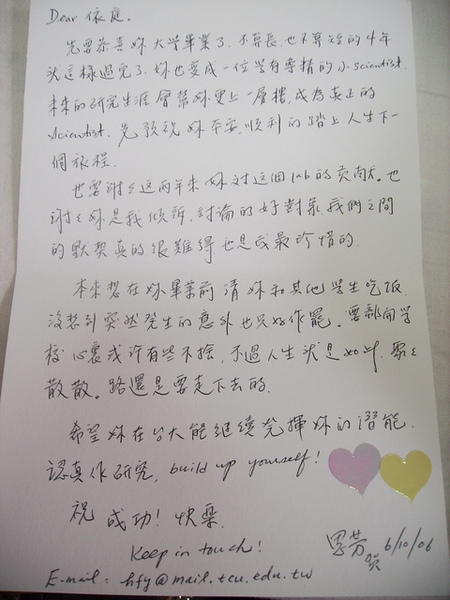 Dear 依庭。
先要恭喜妳大學畢業了,不算長,也不算短的4年
就這樣過完了,妳也變成一位學有專精的小scientist.
未來的研究生涯會幫妳更上一層樓,成為真正的
scientist. 先預祝妳平安,順利的踏上人生下一
個旅程.
也要謝謝這兩年來妳對這個lab的貢獻。也
謝謝妳是我傾訴,討論的好對象,我們之間
的默契真的很難得也是我最珍惜的.
本來想在妳畢業前請妳和其他學生吃飯
沒想到突然發生的意外也只好作罷。要離開學
校心裏或許有些不捨,不過人生就是如此,聚聚
散散。路還是要走下去的.
希望妳在台大能繼續發揮妳的潛能.
認真作研究, build up yourself!
祝 成功! 快樂.
Keep in touch!
思芳 賀 6/10/06
E-mail: hfy@mail.tcu.edu.tw